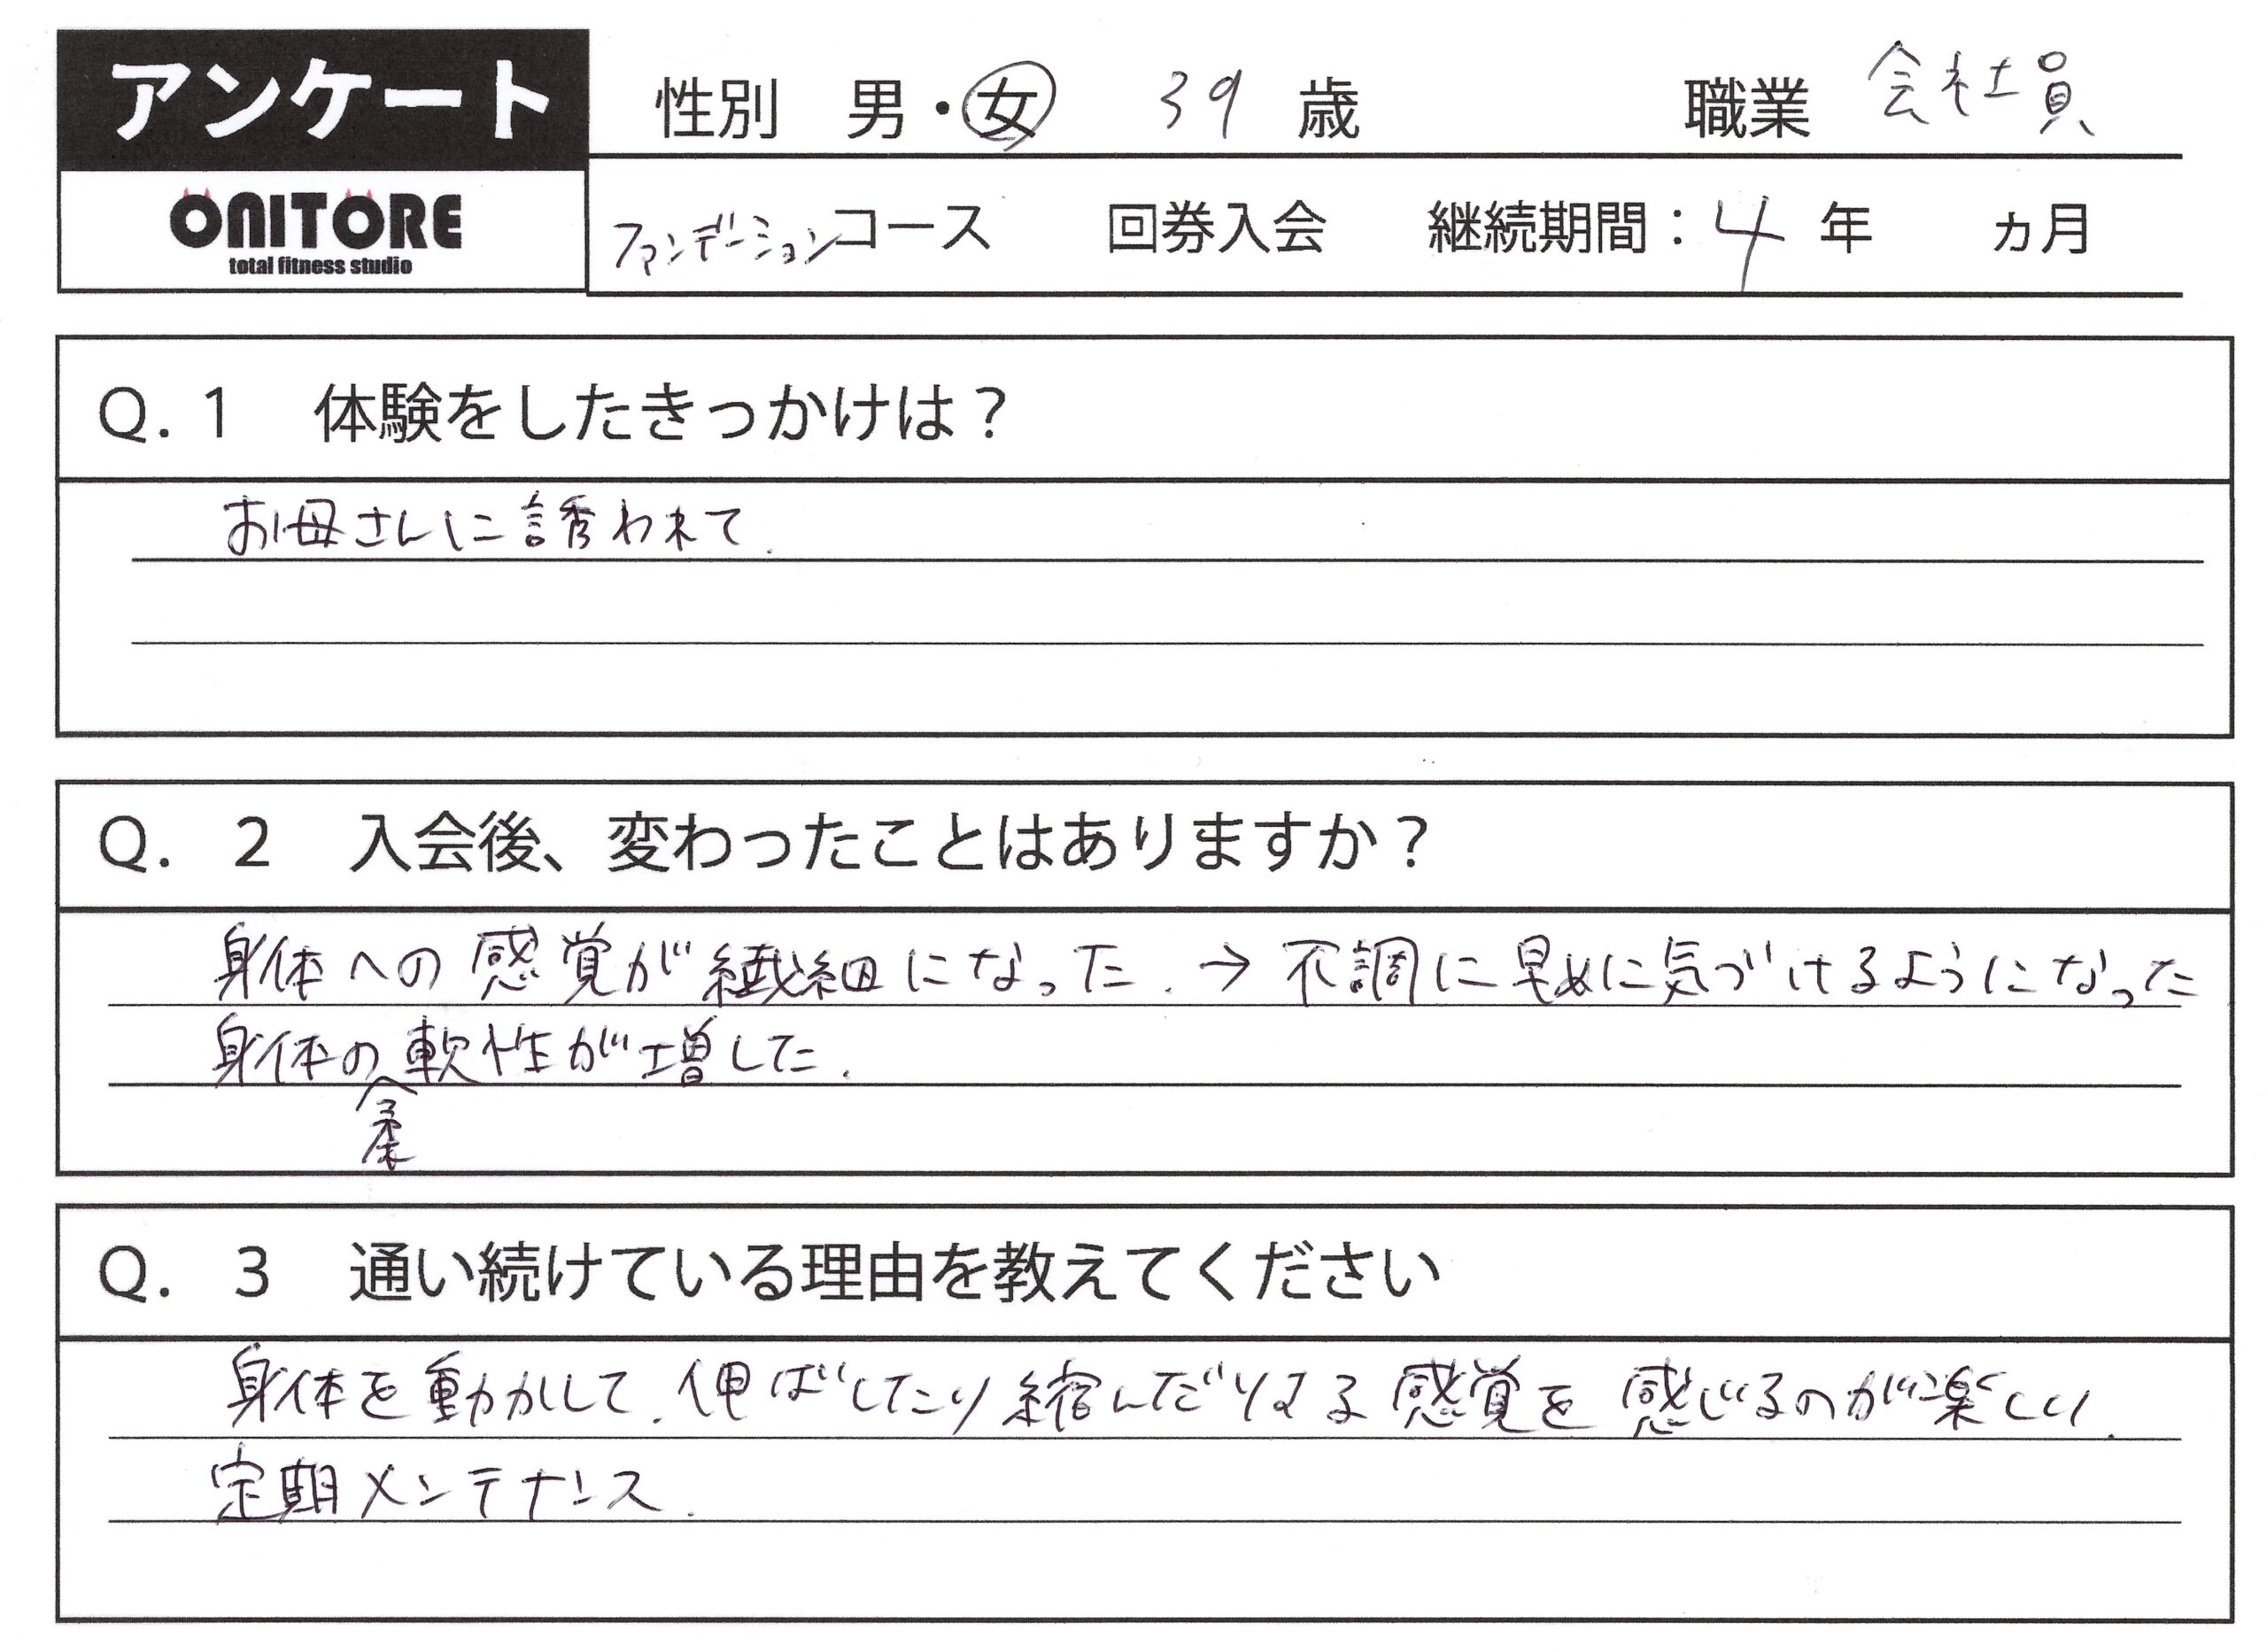 アンケート 性別 男・女 39 歳 職業 会社員
ONITORE
total fitness studio
ファンデーションコース 回券入会 継続期間：4年 ヵ月
Q.1 体験をしたきっかけは？
お母さんに誘われて.
Q. 2 入会後、変わったことはありますか？
身体への感覚が繊細になった. → 不調に早めに気づけるようになった
身体の軟性が増した.
柔
Q. 3 通い続けている理由を教えてください
身体を動かして、伸ばしたり縮んだりする感覚を感じるのが楽しい.
定期メンテナンス.